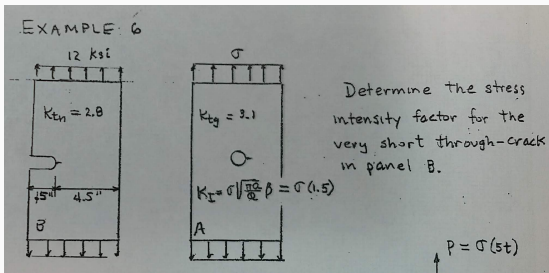 EXAMPLE 6
12 ksi
Ktn = 2.8
.5" 4.5"
B
σ
Ktg = 3.1
KI = σ√(πa/Q) β = σ(1.5)
A
Determine the stress
intensity factor for the
very short through-crack
in panel B.
P = σ(5t)